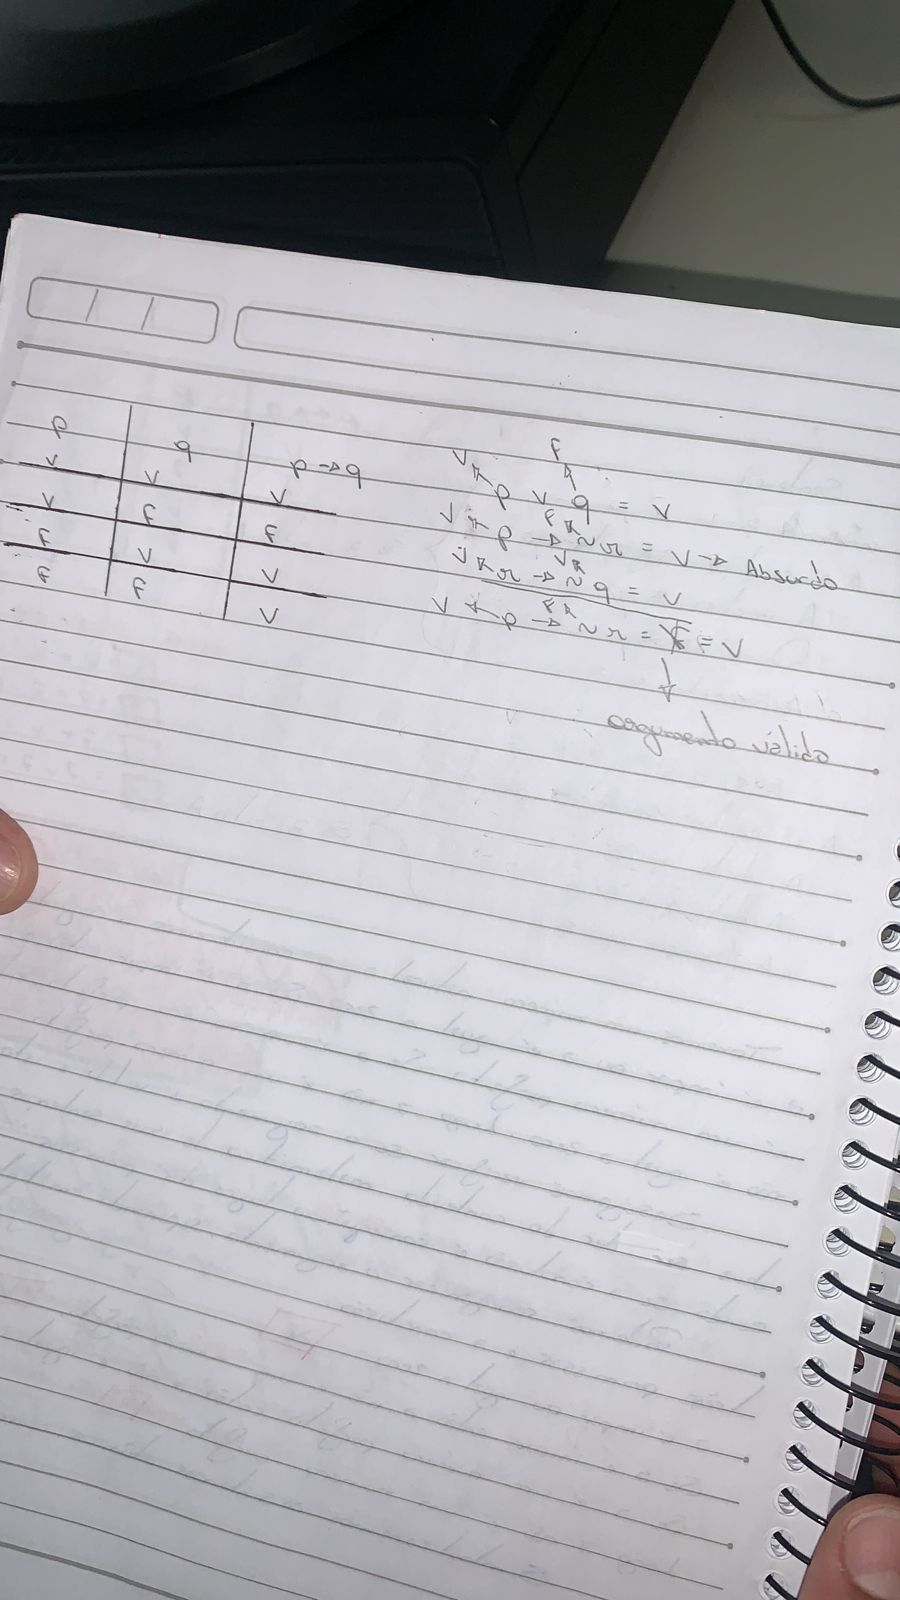 p q p → q
V V V
V F F
F V V
F F V
V F
p v q = V
V F
p → ~r = V → Absurdo
V V
r → ~q = V
V F
p → ~r = F = V
argumento válido